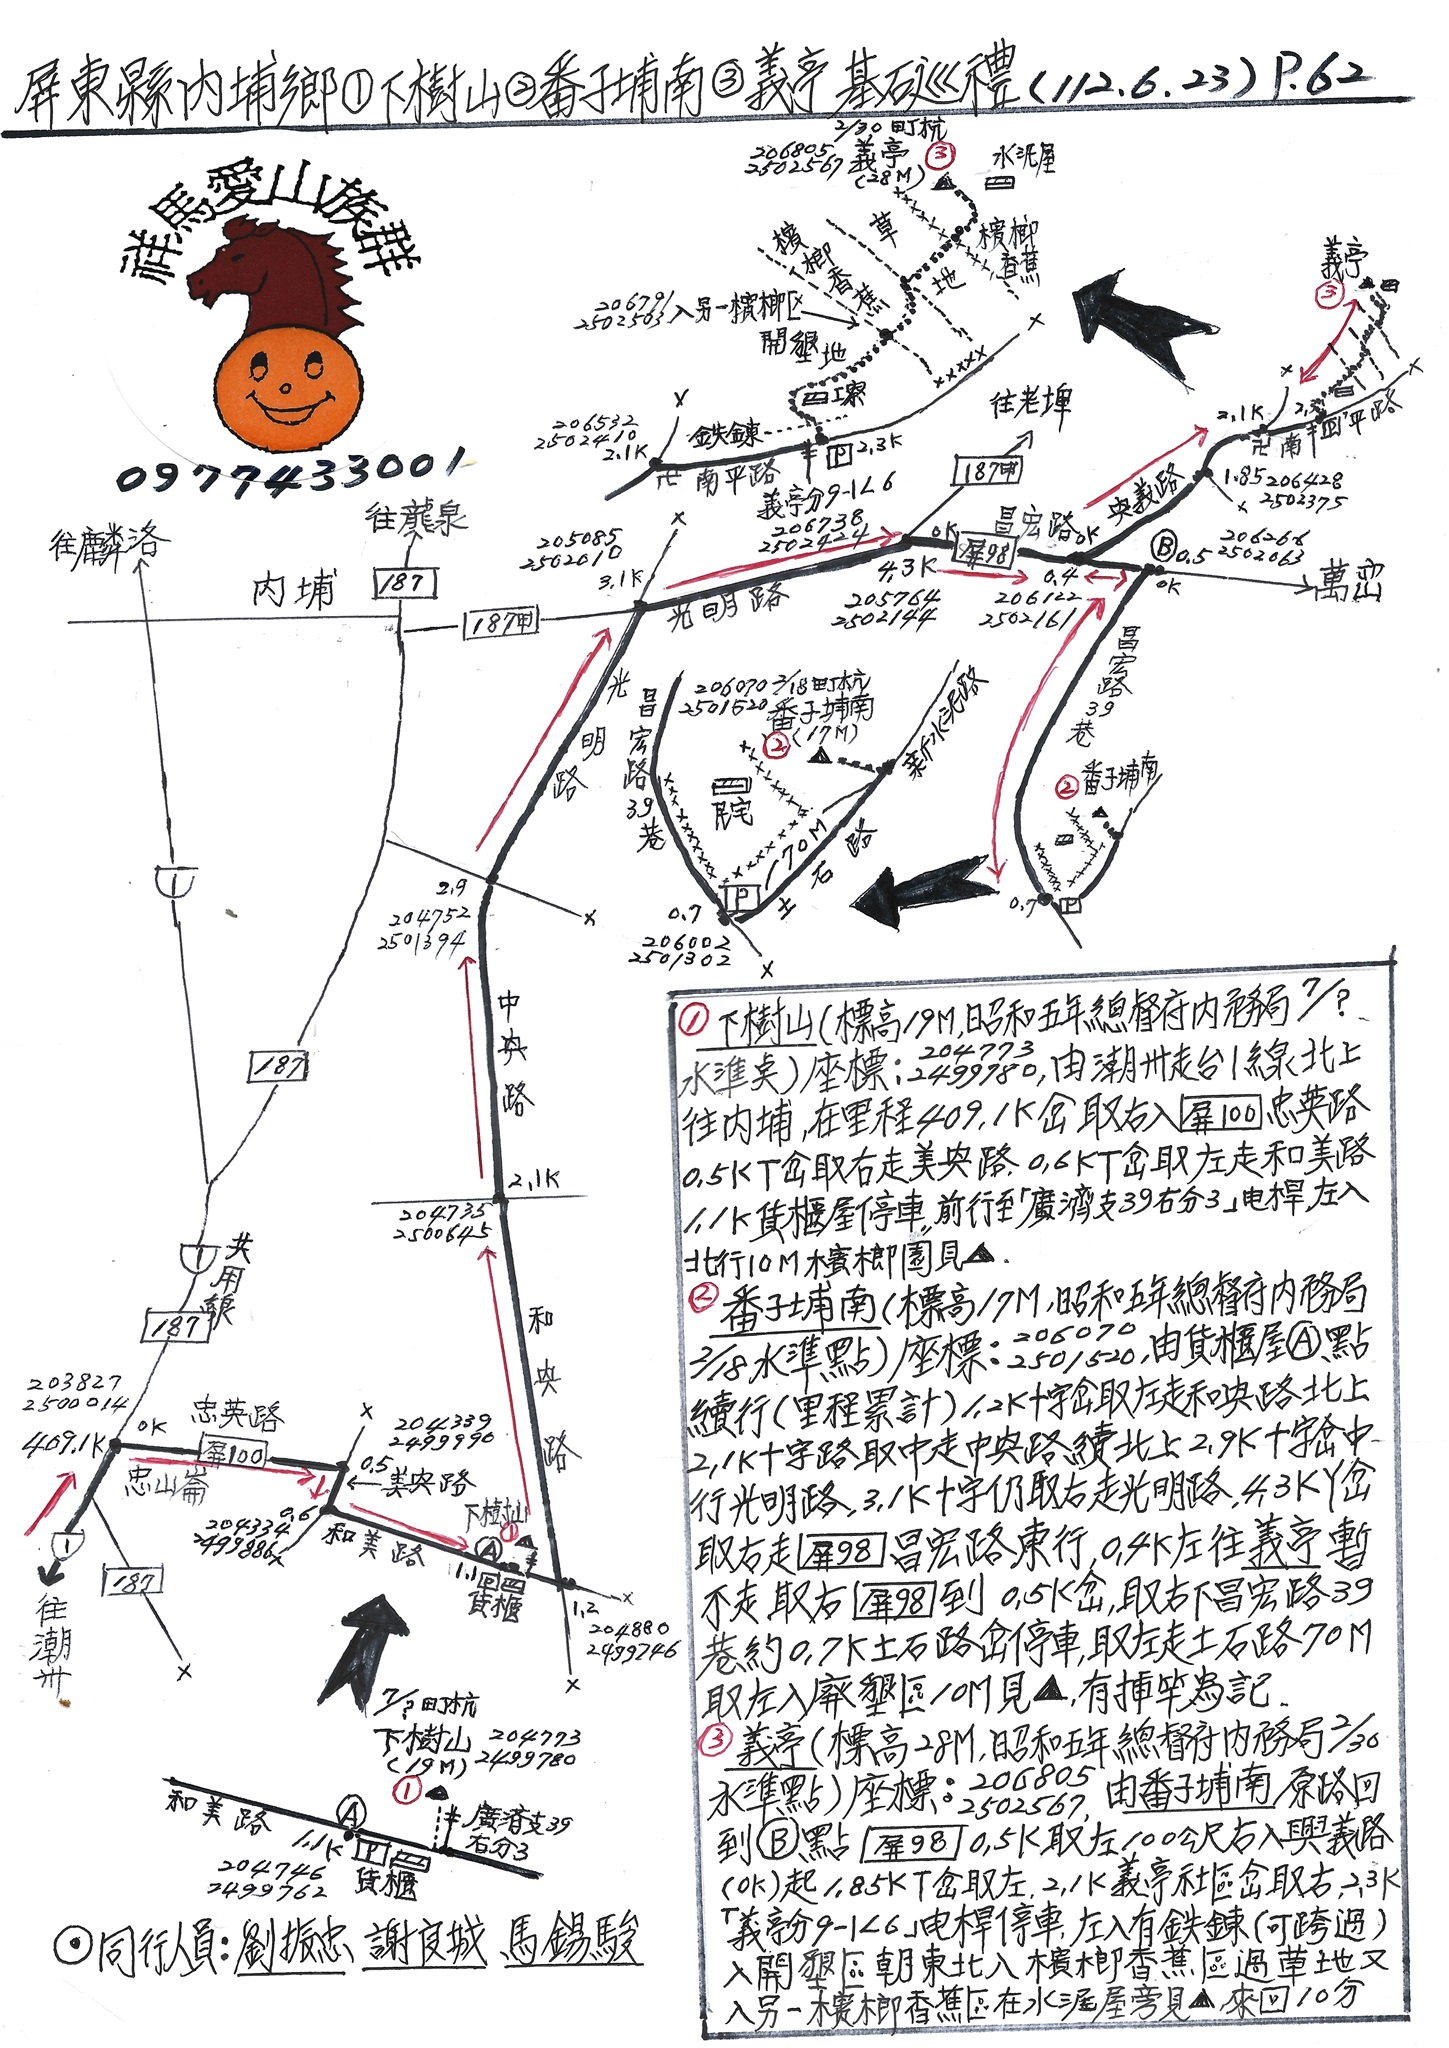 屏東縣内埔鄉①下樹山②番子埔南③義亭基石巡禮(112.6.23)P.62
祥馬愛山族群
0977433001
2/30町杭
206805
2502567
義亭
(28M)
③
水泥屋
檳榔香蕉
草地
檳榔
香蕉
206791
2502503
入另一檳榔區
開墾地
工寮
206532
2502410
2.1K
鉄鍊
卍
南平路
P
2.3K
義亭分9-1L6
206738
2502424
往老埤
187甲
義亭
③
2.1K
卍
南平路
1.85
206428
2502375
央義路
昌宏路
0K
屏98
0K
B
0.5
206266
2502063
0K
萬巒
往麟洛
往龍泉
187
内埔
187甲
205085
2502010
3.1K
光明路
4.3K
205764
2502144
0.4
206122
2502161
昌宏路39巷
②番子埔南
0.7
P
206070
2501520
2/18町杭
番子埔南
(17M)
②
昌宏路39巷
民宅
新水泥路
170M
土石路
P
0.7
206002
2501302
光明路
1
2.9
204752
2501394
中央路
187
2.1K
204735
2500645
1
共用線
187
和央路
203827
2500014
409.1K
0K
忠英路
屏100
忠山崙
204339
2499990
0.5
美央路
0.6
204334
2499886
和美路
下樹山
①
A
1.1
回
貨櫃
1.2
204880
2499746
1
187
往潮州
7/?町杭
下樹山
(19M)
204773
2499780
①
和美路
A
1.1K
P
貨櫃
204746
2499762
廣濟支39
右分3
①下樹山(標高19M,昭和五年總督府内務局7/?
水準奌)座標:204773
2499780,由潮州走台1線北上
往内埔,在里程409.1K岔取右入屏100忠英路
0.5KT岔取右走美央路.0.6KT岔取左走和美路
1.1K貨櫃屋停車,前行至「廣濟支39右分3」电桿,左入
北行10M檳榔園見▲.
②番子埔南(標高17M,昭和五年總督府内務局
2/18水準點)座標:206070
2501520,由貨櫃屋Ⓐ點
續行(里程累計)1.2K十字岔取左走和央路北上
2.1K十字路取中走中央路續北上2.9K十字岔中
行光明路.3.1K十字仍取右走光明路.4.3KY岔
取右走屏98昌宏路東行,0.4K左往義亭暫
不走取右屏98到0.5K岔,取右下昌宏路39
巷約0.7K土石路岔停車,取左走土石路70M
取左入廢墾區10M見▲,有揷竿為記.
③義亭(標高28M,昭和五年總督府内務局2/30
水準點)座標:206805
2502567,由番子埔南原路回
到Ⓑ點屏98 0.5K取左100公尺右入興義路
(0K)起1.85KT岔取左.2.1K義亭社區岔取右,2.3K
「義亭分9-1L6」电桿停車,左入有鉄鍊(可跨過)
入開墾區朝東北入檳榔香蕉區過草地又
入另一檳榔香蕉區在水泥屋旁見▲來回10分
⊙同行人員:劉振忠 謝良城 馬錫駿